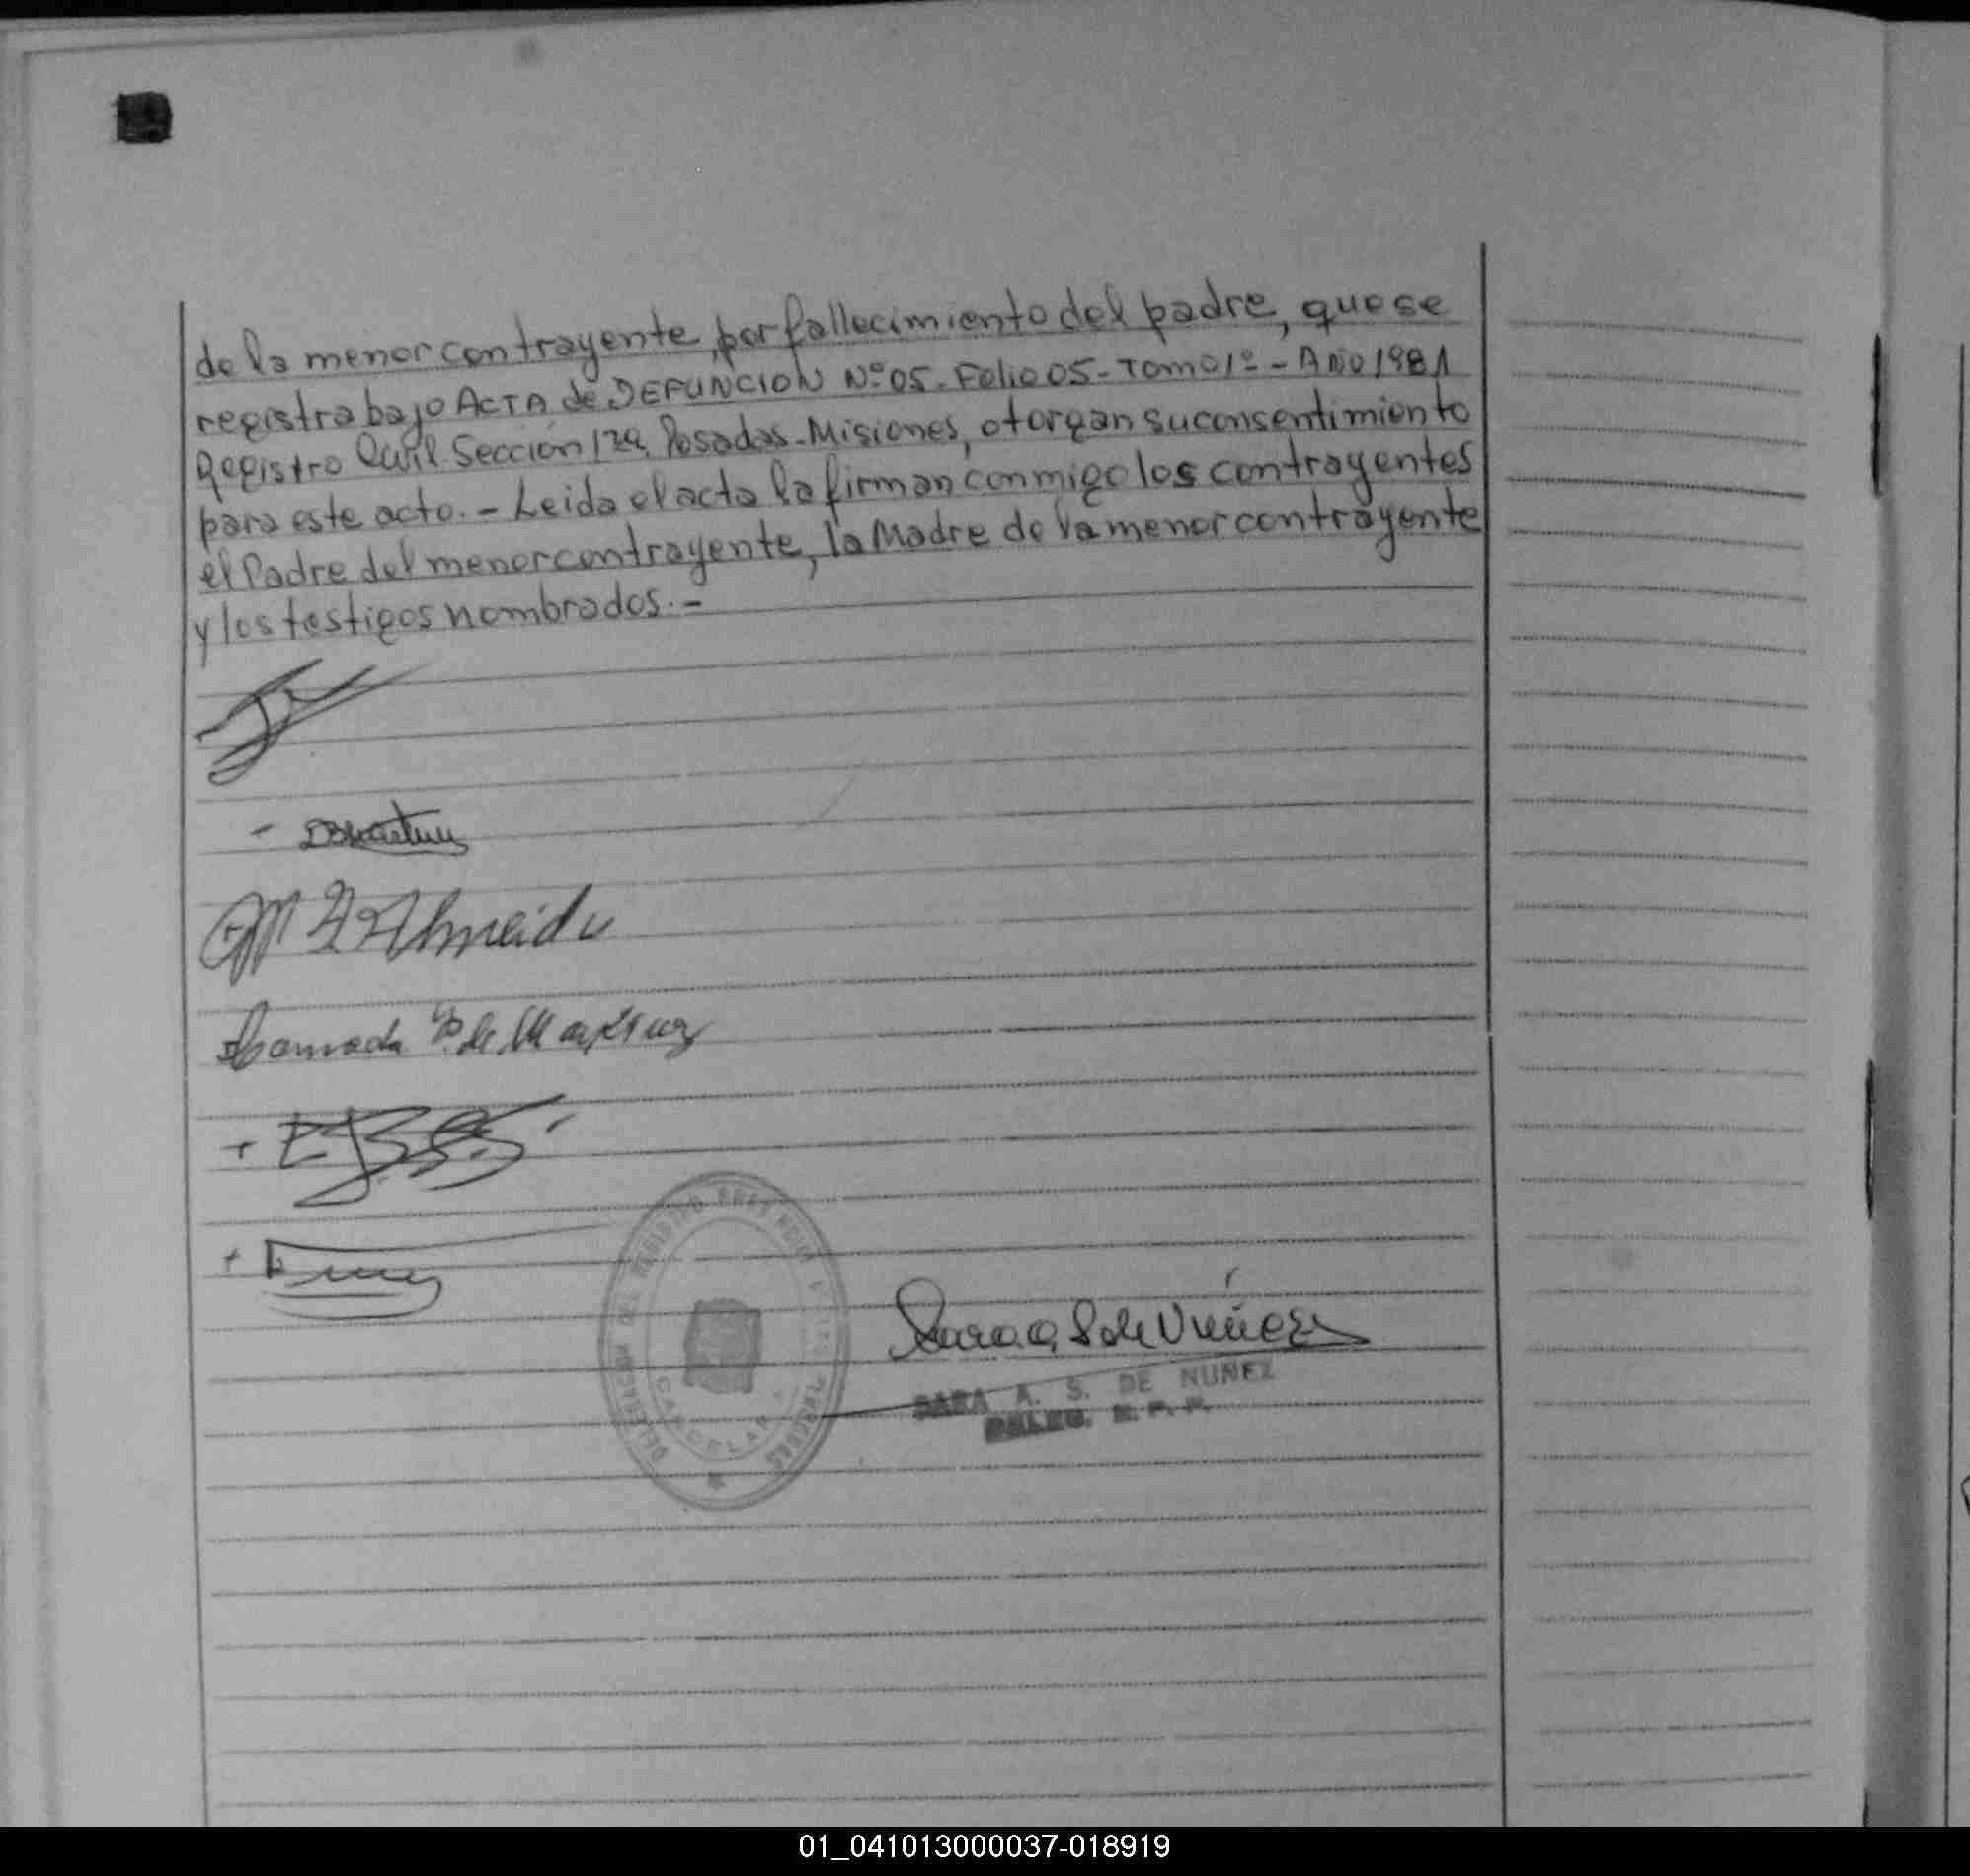 de la menor contrayente, por fallecimiento del padre, que se
registra bajo ACTA de DEFUNCION Nº 05 - Folio 05 - Tomo 1º - AÑO 1981
Registro Civil Sección 12ª Posadas - Misiones, otorgan su consentimiento
para este acto. - Leida el acta la firman conmigo los contrayentes
el Padre del menor contrayente, la Madre de la menor contrayente
y los testigos nombrados. -
Almeida
de Martinez
DELEGACION DEL REGISTRO PROVINCIAL DE LAS PERSONAS
CANDELARIA
Sara A. S de Nuñez
SARA A. S. DE NUÑEZ
DELEG. R. P. P.
01_041013000037-018919